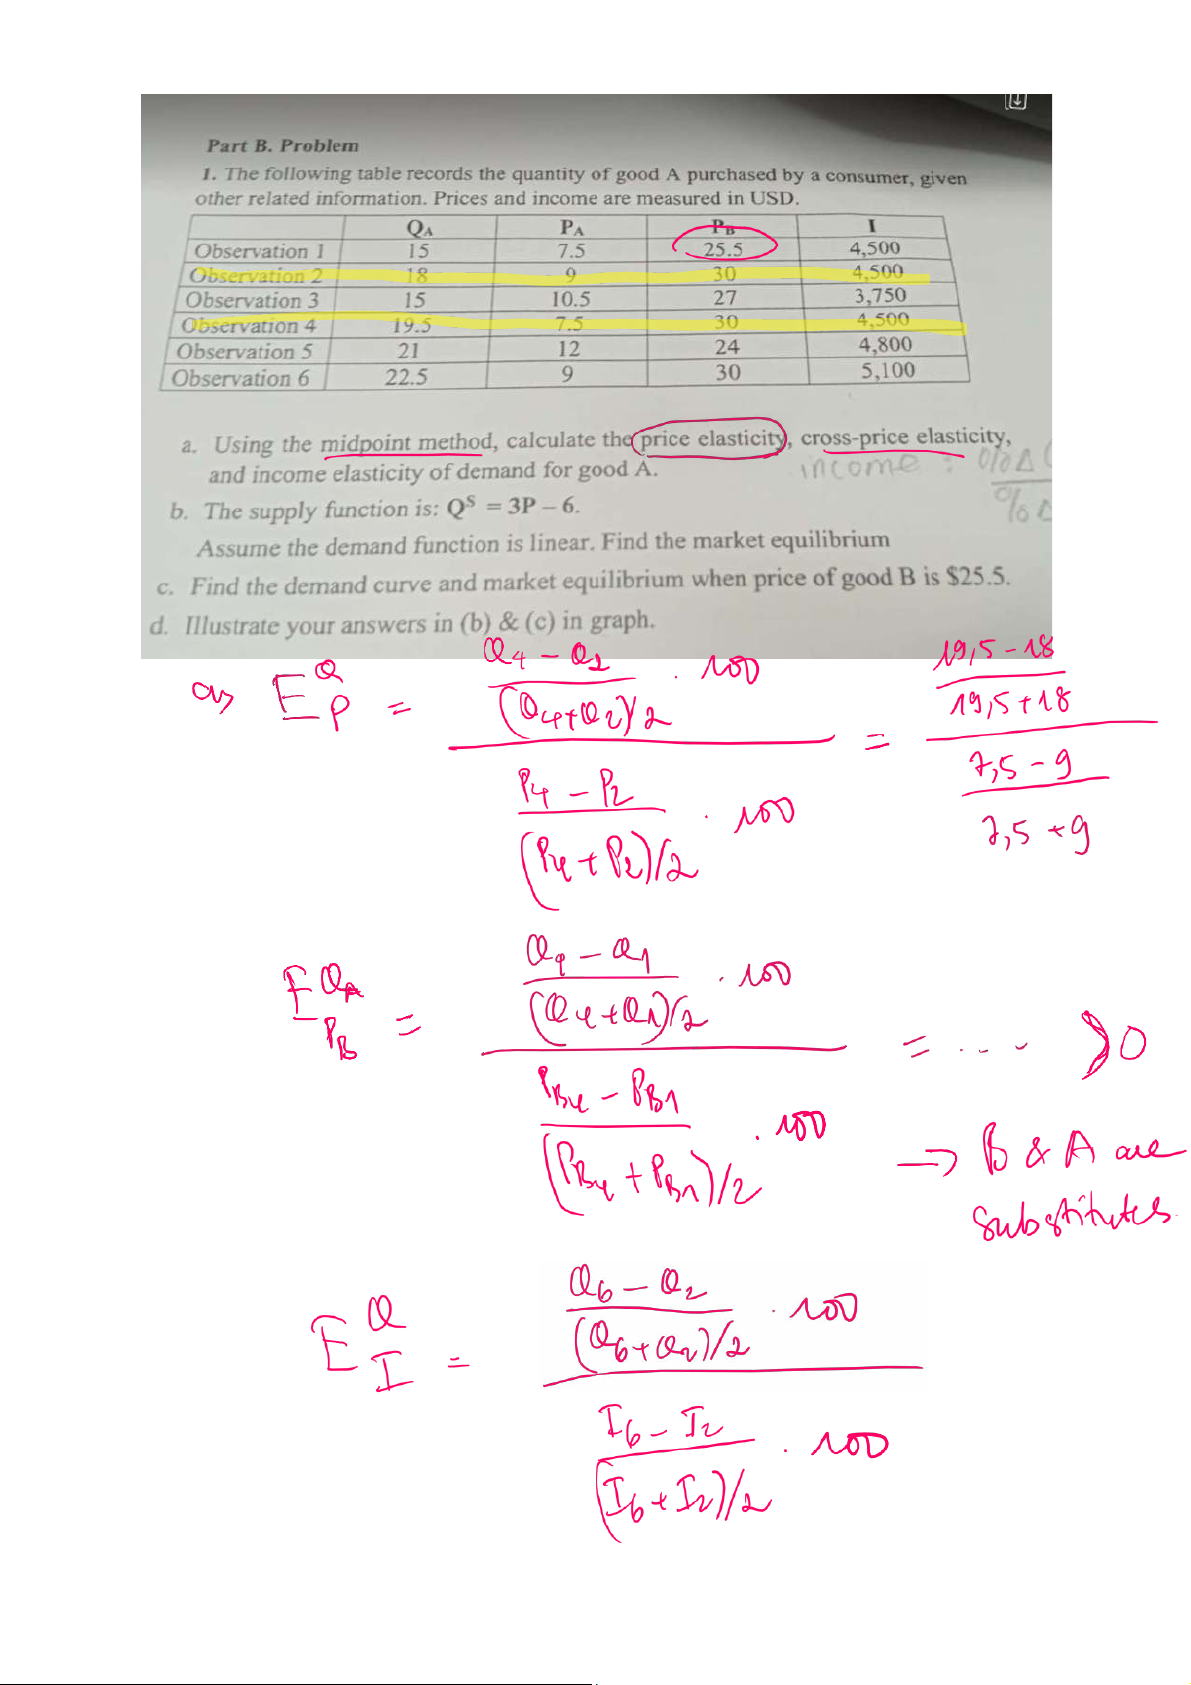 Part B. Problem
1. The following table records the quantity of good A purchased by a consumer, given
other related information. Prices and income are measured in USD.
QA PA PB I
Observation 1 15 7.5 25.5 4,500
Observation 2 18 9 30 4,500
Observation 3 15 10.5 27 3,750
Observation 4 19.5 7.5 30 4,500
Observation 5 21 12 24 4,800
Observation 6 22.5 9 30 5,100
a. Using the midpoint method, calculate the price elasticity, cross-price elasticity,
and income elasticity of demand for good A.
income : %Δ
%Δ
b. The supply function is: Q^S = 3P – 6.
Assume the demand function is linear. Find the market equilibrium
c. Find the demand curve and market equilibrium when price of good B is $25.5.
d. Illustrate your answers in (b) & (c) in graph.
a, E^Q_P = Q4 - Q2 / (Q4+Q2)/2 . 100 = 19,5 - 18 / 19,5 + 18
P4 - P2 / (P4 + P2)/2 . 100 7,5 - 9 / 7,5 + 9
E^QA_PB = Q4 - Q1 / (Q4+Q1)/2 . 100 = .... > 0
PB4 - PB1 / (PB4 + PB1)/2 . 100 → B & A are
substitutes
E^Q_I = Q6 - Q2 / (Q6+Q2)/2 . 100
I6 - I2 / (I6 + I2)/2 . 100